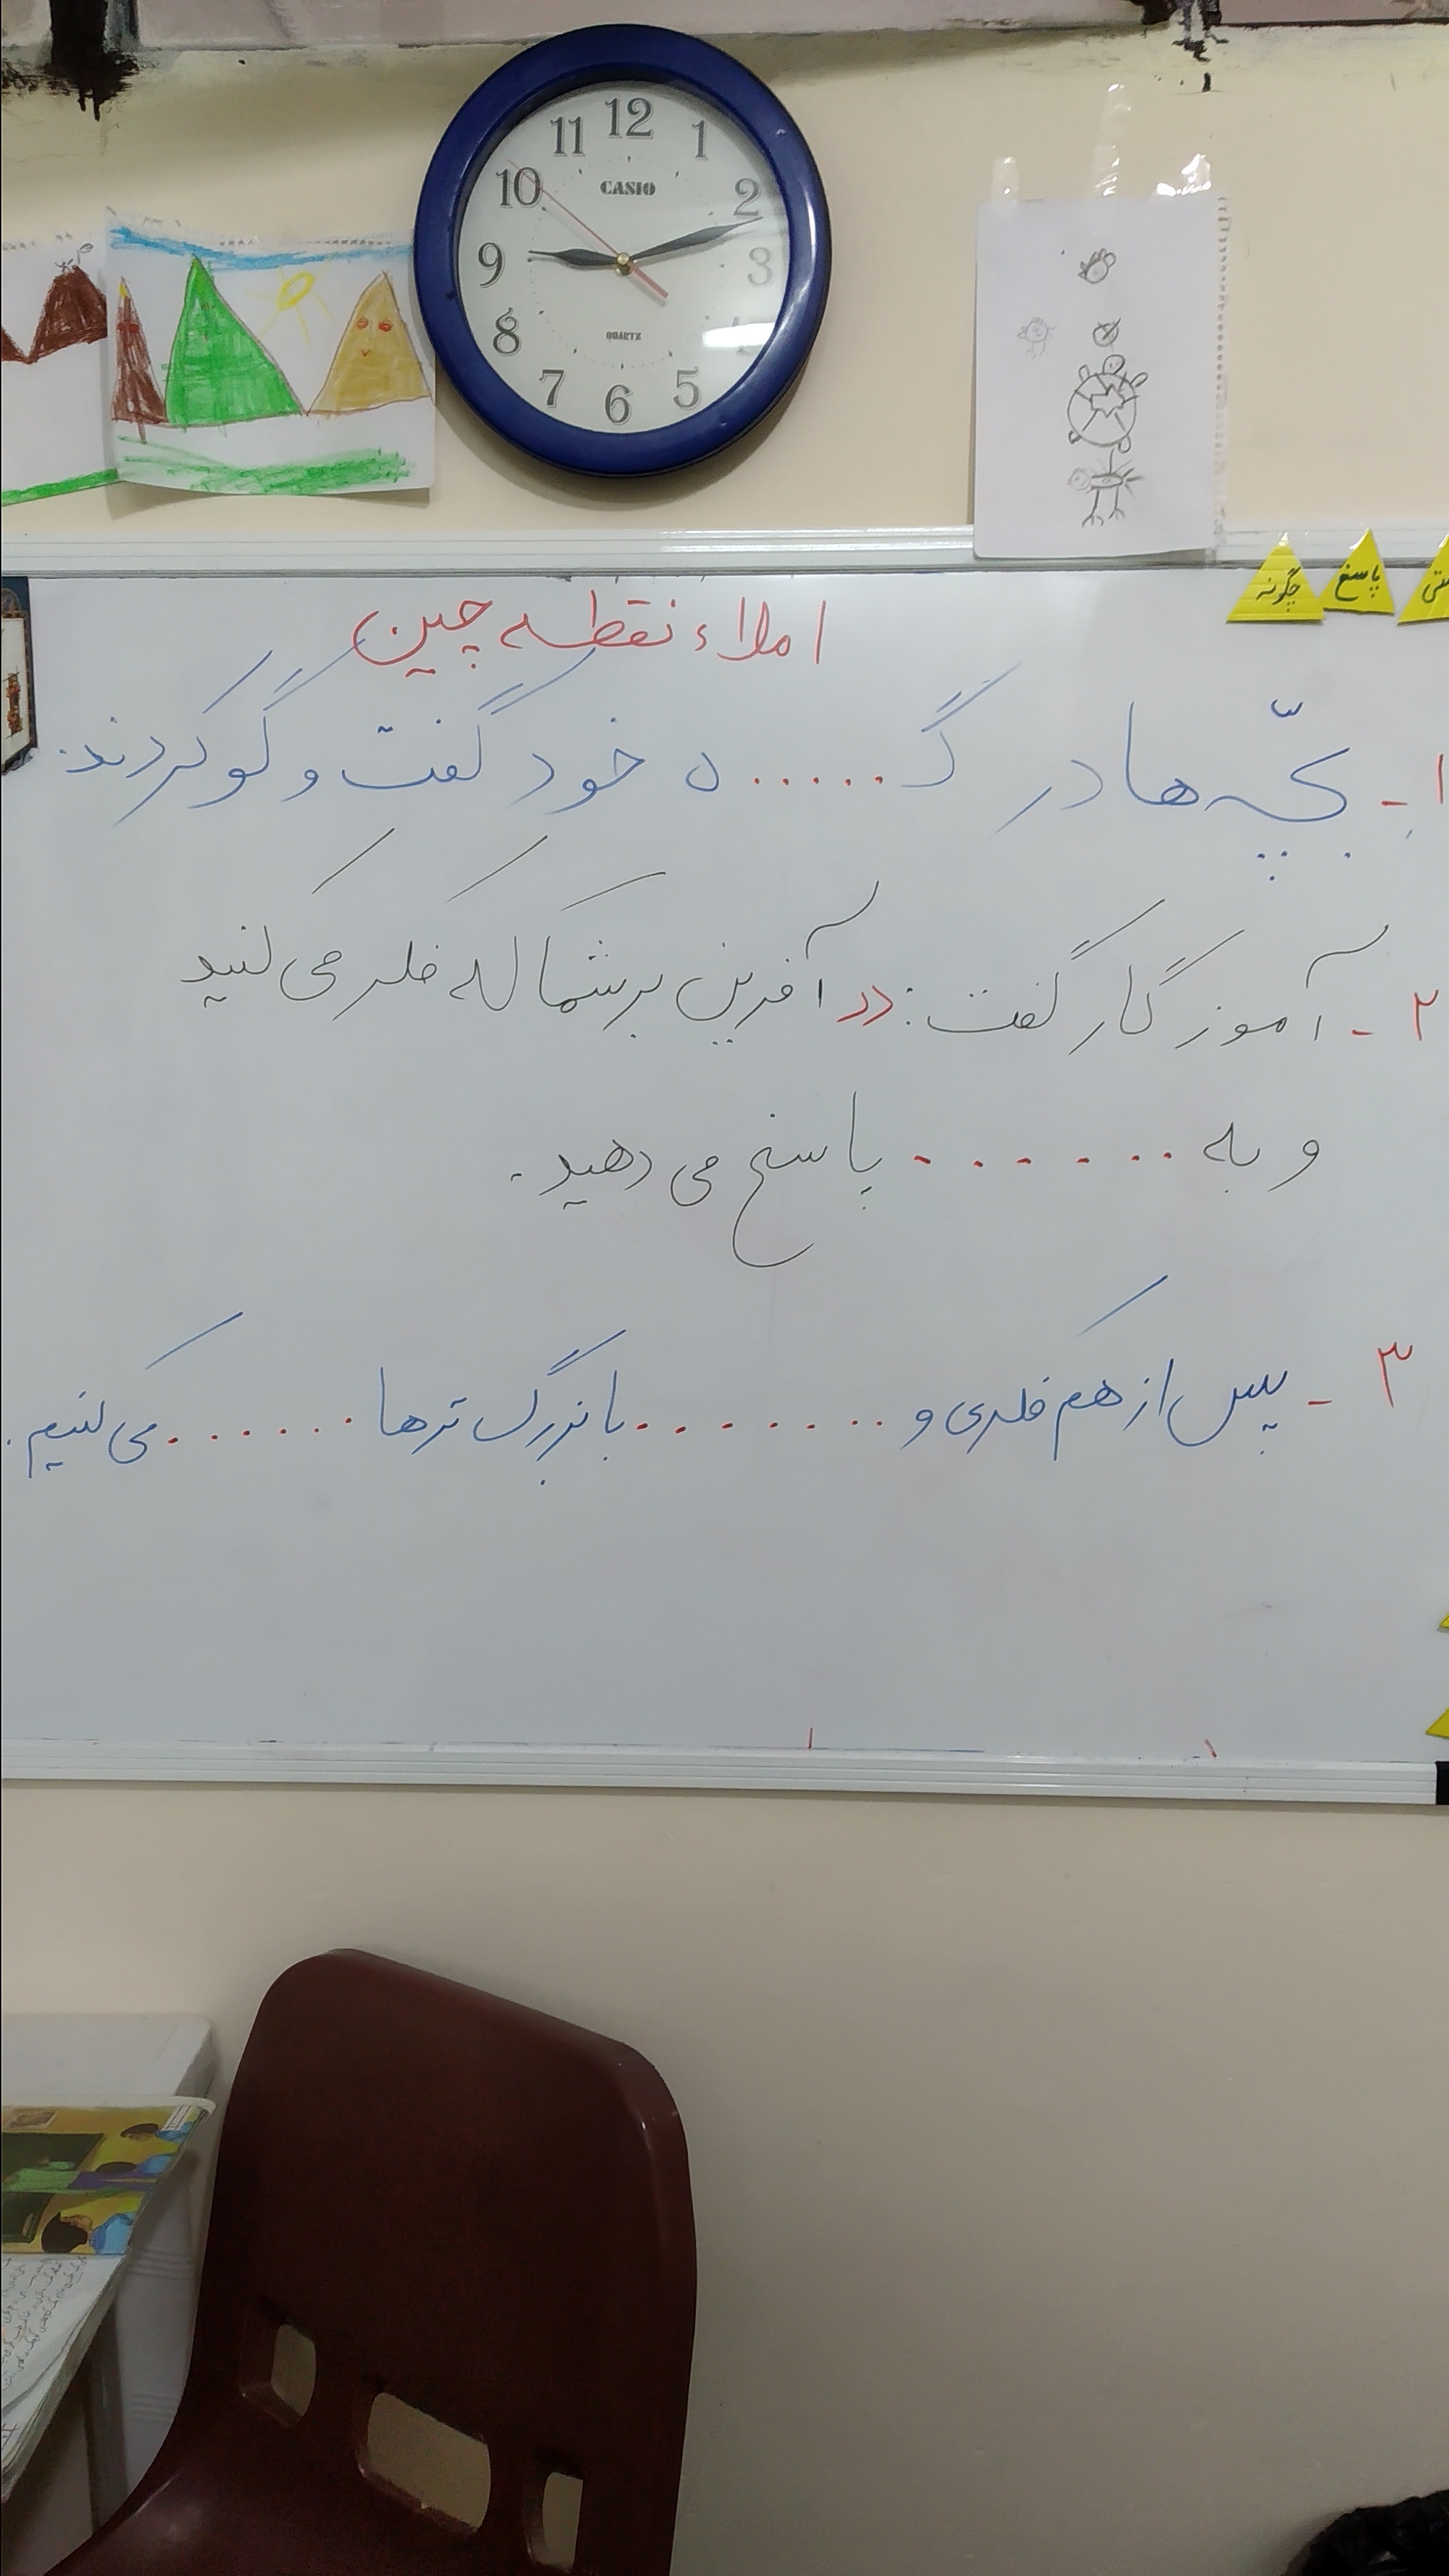 12
11 1
10 CASIO 2
9 3
8
QUARTZ
7 5
6
چگونه پاسخ
املاء نقطه چین
۱- بچّه ها در گ.....ه خود گفت و گو کردند.
۲- آموزگار گفت: «آفرین بر شما که فکر می کنید
و به ....... پاسخ می دهید.
۳- پس از هم فکری و ........ با بزرگ ترها ...... می کنیم.